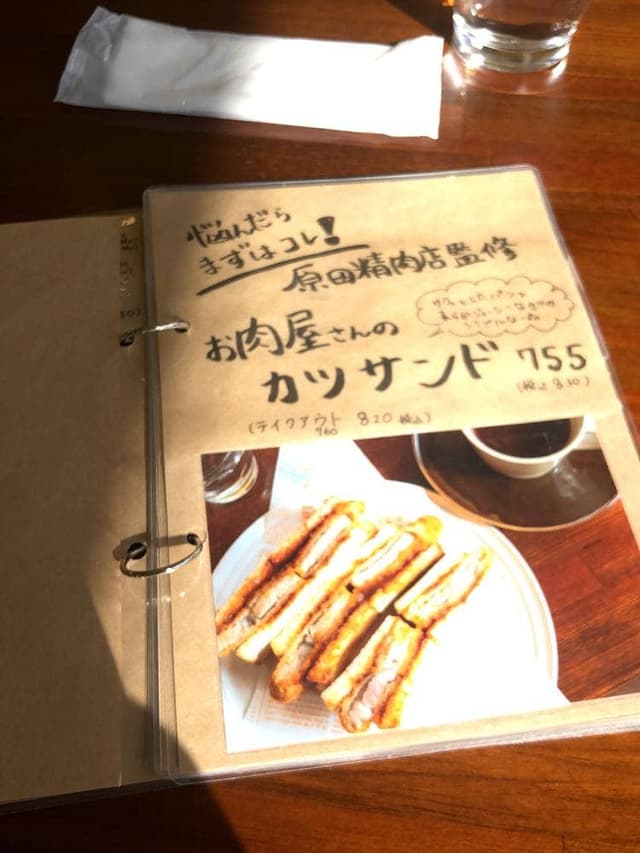 悩んだら
まずはコレ!
原田精肉店監修
お肉屋さんの
カツサンド 755
(税込830)
(テイクアウト 820 税込)
760